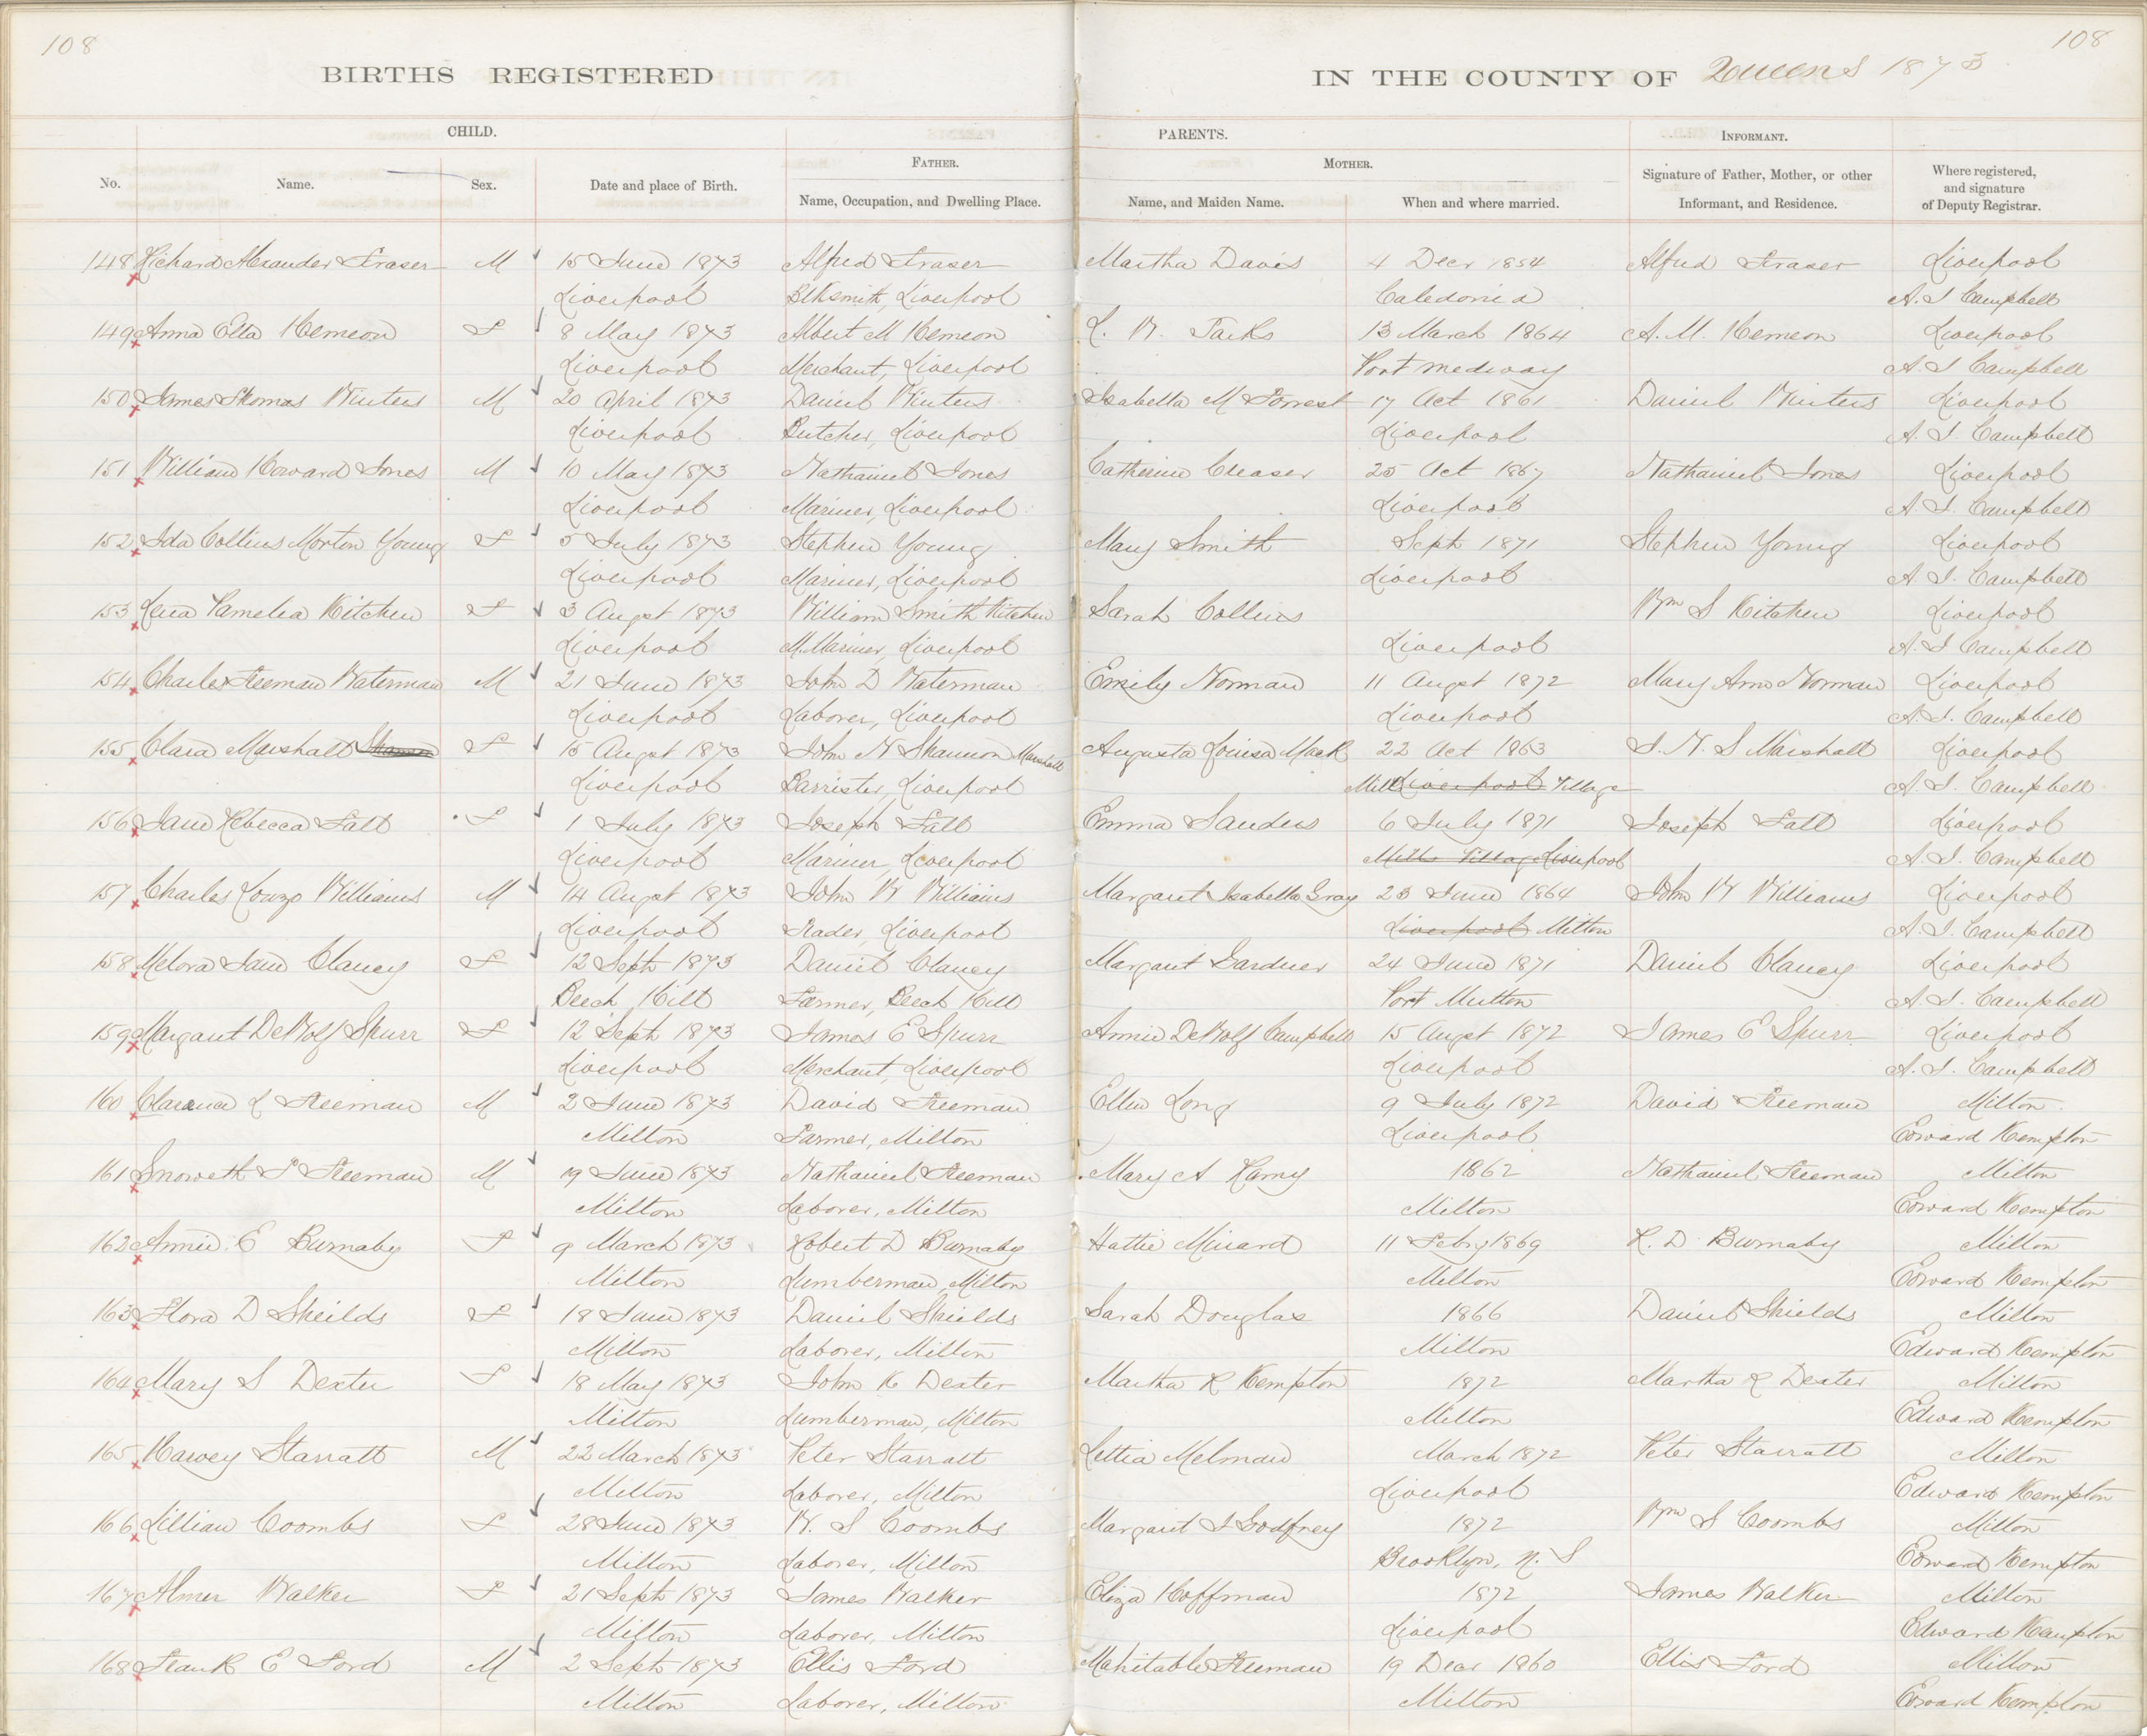 108
108
BIRTHS REGISTERED
IN THE COUNTY OF Queens 1873
CHILD.
PARENTS.
INFORMANT.
FATHER.
MOTHER.
No.
Name.
Sex.
Date and place of Birth.
Name, Occupation, and Dwelling Place.
Name, and Maiden Name.
When and where married.
Signature of Father, Mother, or other
Informant, and Residence.
Where registered,
and signature
of Deputy Registrar.
148 Richard Alexander Fraser M 15 June 1873 Alfred Fraser Martha Davis 4 Decr 1854 Alfred Fraser Liverpool
Liverpool Blksmith, Liverpool Caledonia A. S Campbell
149 Anna Etta Hemeon F 8 May 1873 Albert M Hemeon L. W. Jacks 13 March 1864 A. M. Hemeon Liverpool
Liverpool Merchant, Liverpool Port medway A. S Campbell
150 James Thomas Winters M 20 April 1873 Daniel Winters Isabella M Forrest 17 Oct 1861 Daniel Winters Liverpool
Liverpool Butcher, Liverpool Liverpool A. S. Campbell
151 William Howard Jones M 10 May 1873 Nathaniel Jones Catherine Creaser 25 Oct 1867 Nathaniel Jones Liverpool
Liverpool Mariner, Liverpool Liverpool A. S. Campbell
152 Ida Collins Morton Young F 5 July 1873 Stephen Young Mary Smith Sept 1871 Stephen Young Liverpool
Liverpool Mariner, Liverpool Liverpool A. S. Campbell
153 Lena Pamelia Kitchen F 3 Augst 1873 William Smith Kitchen Sarah Collins Wm S Kitchen Liverpool
Liverpool M. Mariner, Liverpool Liverpool A. S Campbell
154 Charles Freeman Waterman M 21 June 1873 John D Waterman Emily Norman 11 Augst 1872 Mary Ann Norman Liverpool
Liverpool Laborer, Liverpool Liverpool A. S. Campbell
155 Clara Marshall F 15 Augst 1873 John N Shannon Marshall Augusta Louisa Mack 22 Oct 1863 J. N. S Marshall Liverpool
Liverpool Barrister, Liverpool Mill Liverpool Village A. S. Campbell
156 Jane Rebecca Fall F 1 July 1873 Joseph Fall Emma Sanders 6 July 1871 Joseph Fall Liverpool
Liverpool Mariner, Liverpool Mills Village Liverpool A. S. Campbell
157 Charles Lonzo Williams M 14 Augst 1873 John W Williams Margaret Isabella Gray 23 June 1864 John W Williams Liverpool
Liverpool Trader, Liverpool Liverpool Milton A. S. Campbell
158 Melora Jane Clancy F 12 Sept 1873 Daniel Clancy Margaret Gardner 24 June 1871 Daniel Clancy Liverpool
Beech Hill Farmer, Beech Hill Port Mutton A. S. Campbell
159 Margaret DeWolf Spurr F 12 Sept 1873 James E Spurr Annie DeWolf Campbell 15 Augst 1872 James E Spurr Liverpool
Liverpool Merchant, Liverpool Liverpool A. S. Campbell
160 Clarance L Freeman M 2 June 1873 David Freeman Ellen Long 9 July 1872 David Freeman Milton
Milton Farmer, Milton Liverpool Edward Kempton
161 Snoweth S Freeman M 19 June 1873 Nathaniel Freeman Mary A Kamy 1862 Nathaniel Freeman Milton
Milton Laborer, Milton Milton Edward Kempton
162 Annie E Burnaby F 9 March 1873 Robert D Burnaby Hattie Minard 11 Febry 1869 R. D Burnaby Milton
Milton Lumberman, Milton Milton Edward Kempton
163 Flora D Sheilds F 18 June 1873 Daniel Shields Sarah Douglas 1866 Daniel Shields Milton
Milton Laborer, Milton Milton Edward Kempton
164 Mary S Dexter F 18 May 1873 John K Dexter Martha R Kempton 1872 Martha R Dexter Milton
Milton Lumberman, Milton Milton Edward Kempton
165 Harvey Starratt M 22 March 1873 Peter Starratt Lettia Melman March 1872 Peter Starratt Milton
Milton Laborer, Milton Liverpool Edward Kempton
166 Lillian Coombs F 28 June 1873 W. S Coombs Margaret J Godfrey 1872 Wm S Coombs Milton
Milton Laborer, Milton Brooklyn, N. S Edward Kempton
167 Almer Walker F 21 Sept 1873 James Walker Eliza Hoffman 1872 James Walker Milton
Milton Laborer, Milton Liverpool Edward Kempton
168 Frank E Ford M 2 Sept 1873 Ellis Ford Mahitable Freeman 19 Decr 1860 Ellis Ford Milton
Milton Laborer, Milton Milton Edward Kempton